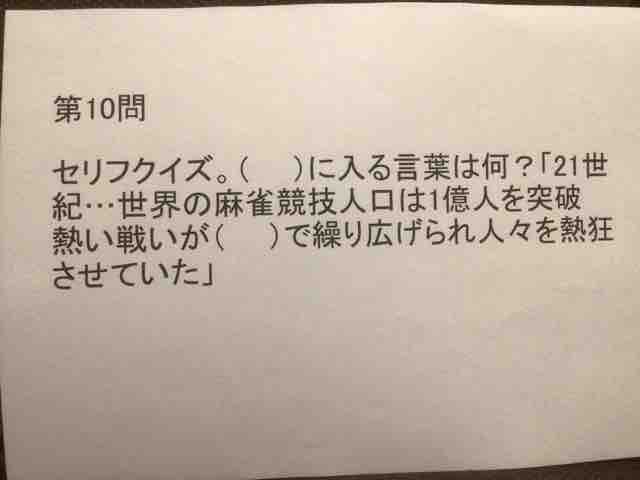 第10問
セリフクイズ。(　　)に入る言葉は何？「21世
紀…世界の麻雀競技人口は1億人を突破
熱い戦いが(　　)で繰り広げられ人々を熱狂
させていた」